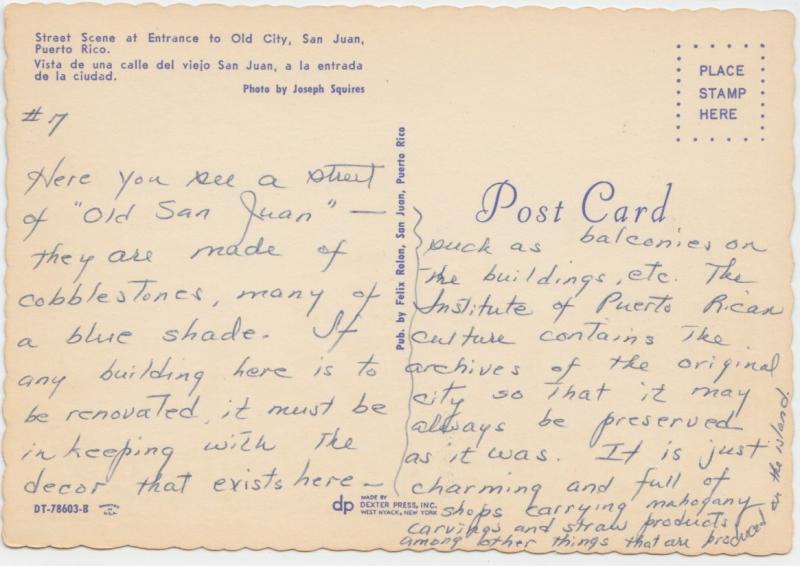 Street Scene at Entrance to Old City, San Juan,
Puerto Rico.
Vista de una calle del viejo San Juan, a la entrada
de la ciudad.
Photo by Joseph Squires
#7
Here you see a street
of "Old San Juan" —
they are made of
cobblestones, many of
a blue shade. If
any building here is to
be renovated, it must be
in keeping with the
decor that exists here —
DT-78603-B
Pub. by Felix Rolon, San Juan, Puerto Rico
dp
MADE BY
DEXTER PRESS, INC.
WEST NYACK, NEW YORK
PLACE
STAMP
HERE
Post Card
such as balconies on
the buildings, etc. The
Institute of Puerto Rican
culture contains the
archives of the original
city so that it may
always be preserved
as it was. It is just
charming and full of
shops carrying mahogany
carvings and straw products
among other things that are produced
on the island.